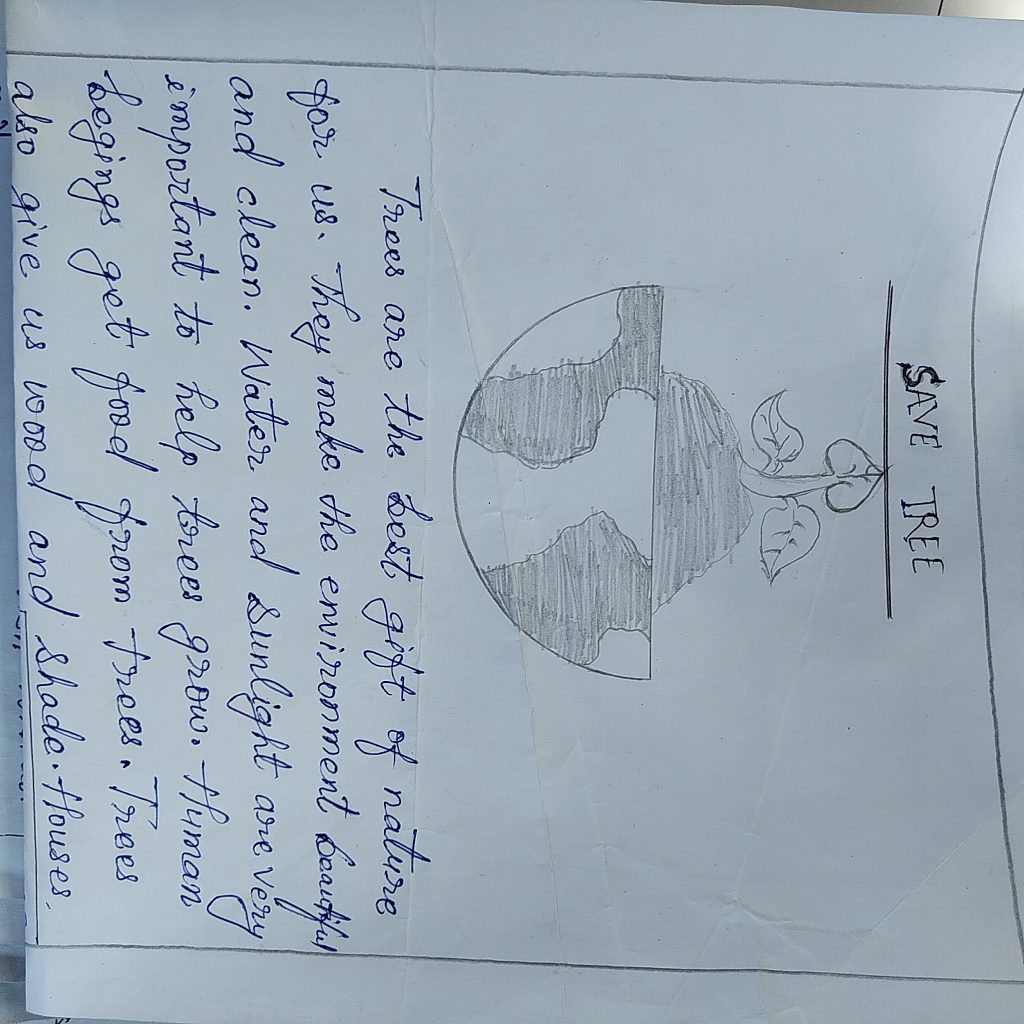 SAVE TREE
Trees are the best gift of nature
for us. They make the environment beautiful
and clean. Water and Sunlight are very
important to help trees grow. Human
begings get food from trees. Trees
also give us wood and shade. Houses.